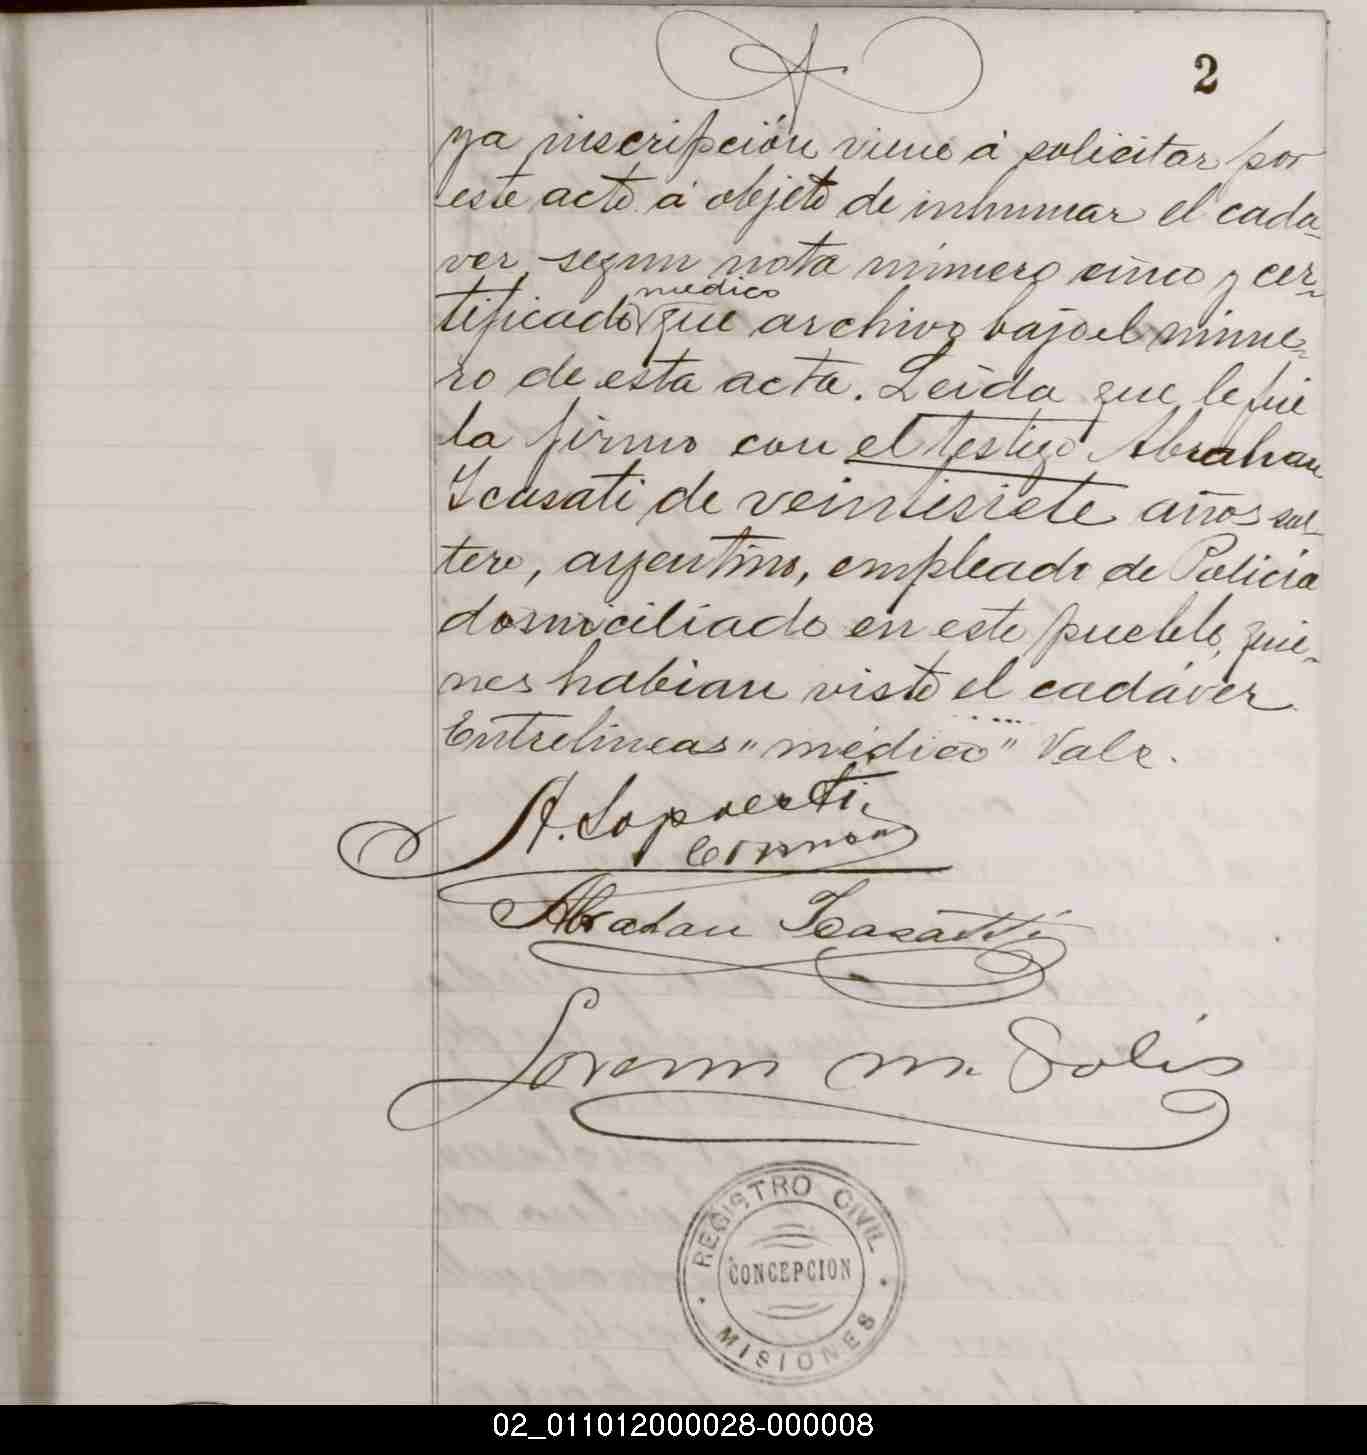 2
ya inscripción viene á solicitar por
este acto á objeto de inhumar el cada-
ver, segun nota número cinco y cer-
medico
tificado que archivo bajo el núme-
ro de esta acta. Leida que le fué
la firmo con el testigo Abrahan
Icasati de veintisiete años sol-
tero, argentino, empleado de Policia
domiciliado en este pueblo, quie-
nes habian visto el cadáver
Entrelineas "médico" Vale.
Abrahan Icasatti
Lorenzo M. Solis
REGISTRO CIVIL
CONCEPCION
MISIONES
02_011012000028-000008